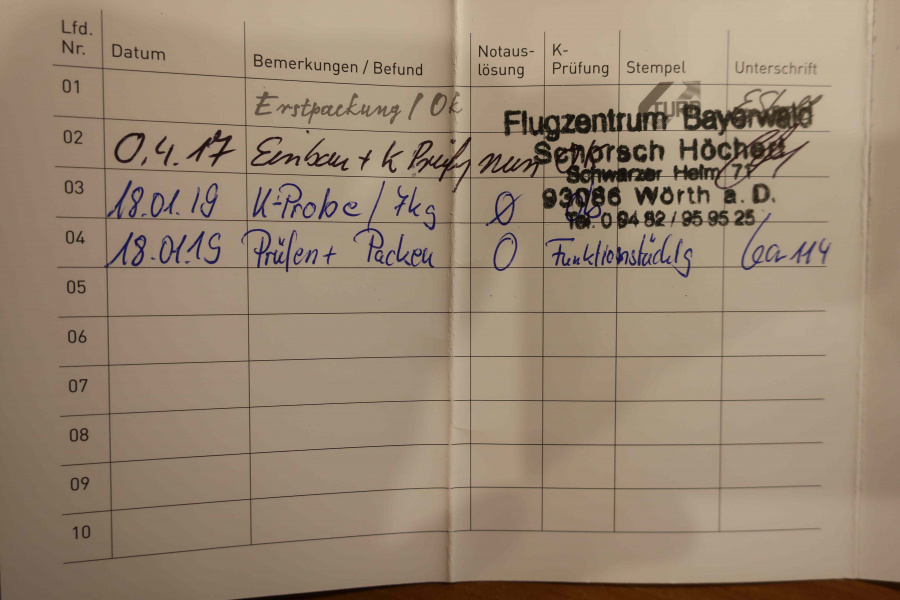 Lfd. Nr. Datum Bemerkungen / Befund Notaus-lösung K-Prüfung Stempel Unterschrift
01 Erstpackung / Ok
02 0.4.17 Einbau + K Prüfg
Flugzentrum Bayerwald
Schorsch Höcherl
Schwarzer Helm 71
93086 Wörth a. D.
Tel. 0 94 82 / 95 95 25
03 18.01.19 K-Probe / 7kg 0
04 18.01.19 Prüfen + Packen 0 Funktionstüchtig
05
06
07
08
09
10